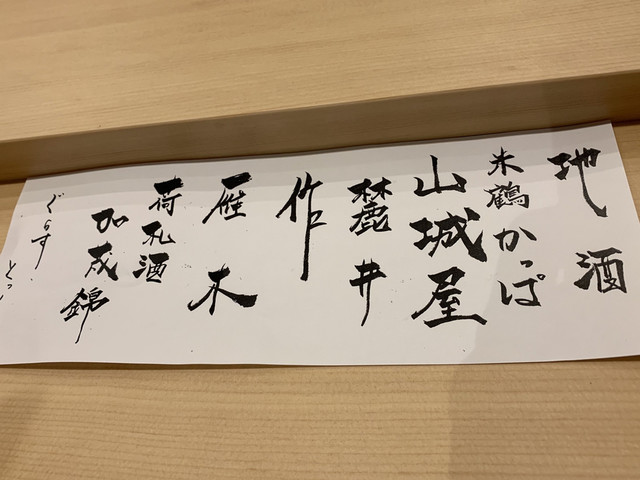 地酒
米鶴かっぱ
山城屋
麓井
作
雁木
荷札酒
加茂錦
ぐらす